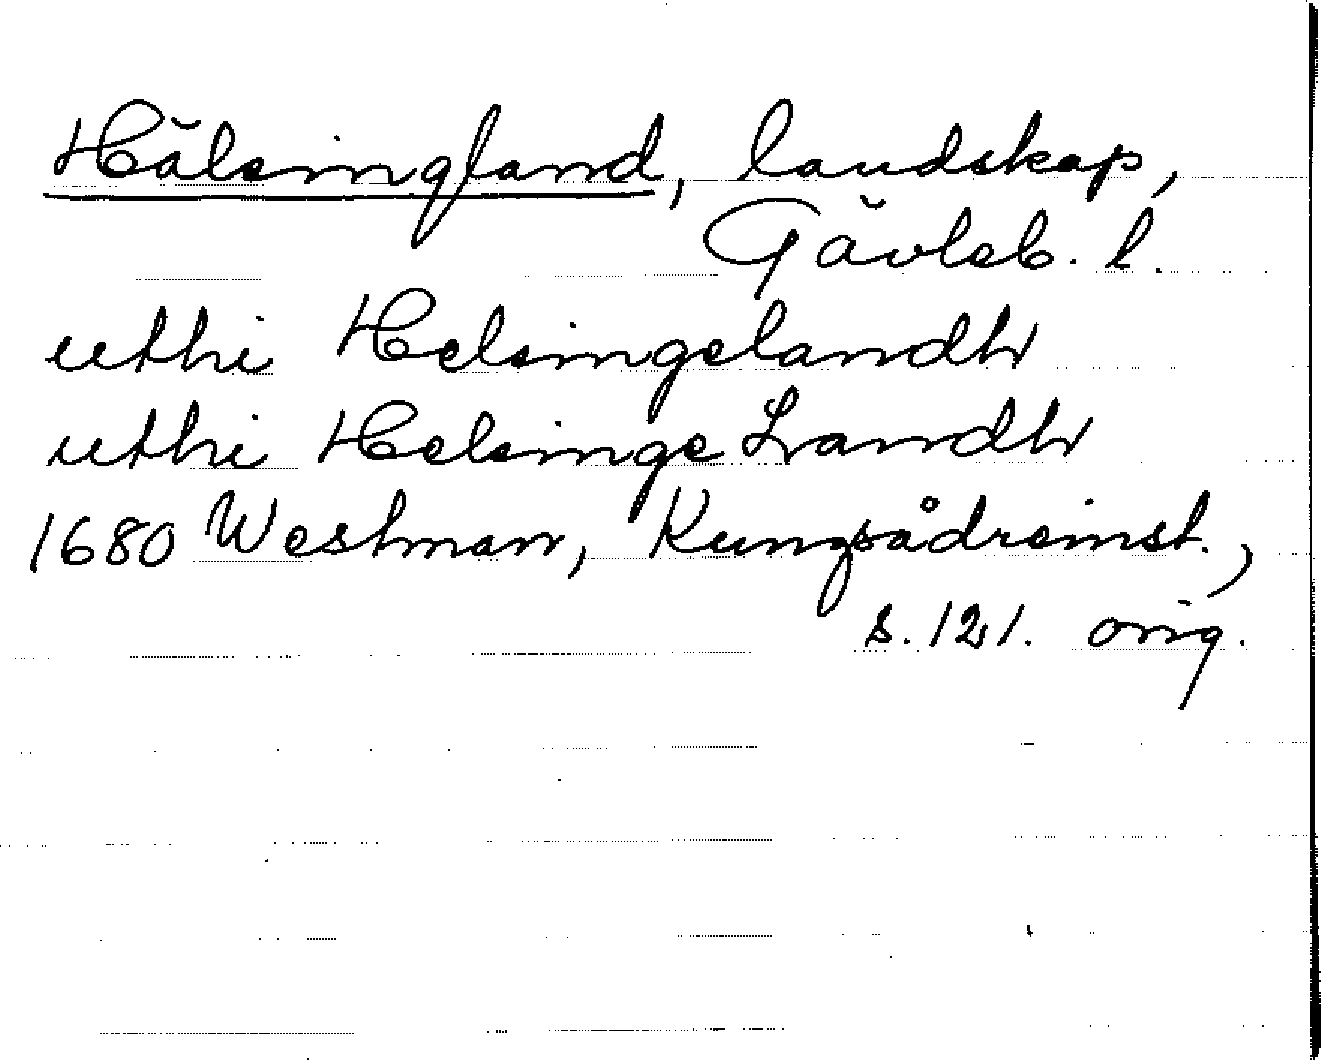 Hälsingland, landskap,
Gävleb. l.
uthi Helsingelandh
uthi Helsinge Landh
1680 Westman, Kungsådreinst.,
s. 121. orig.